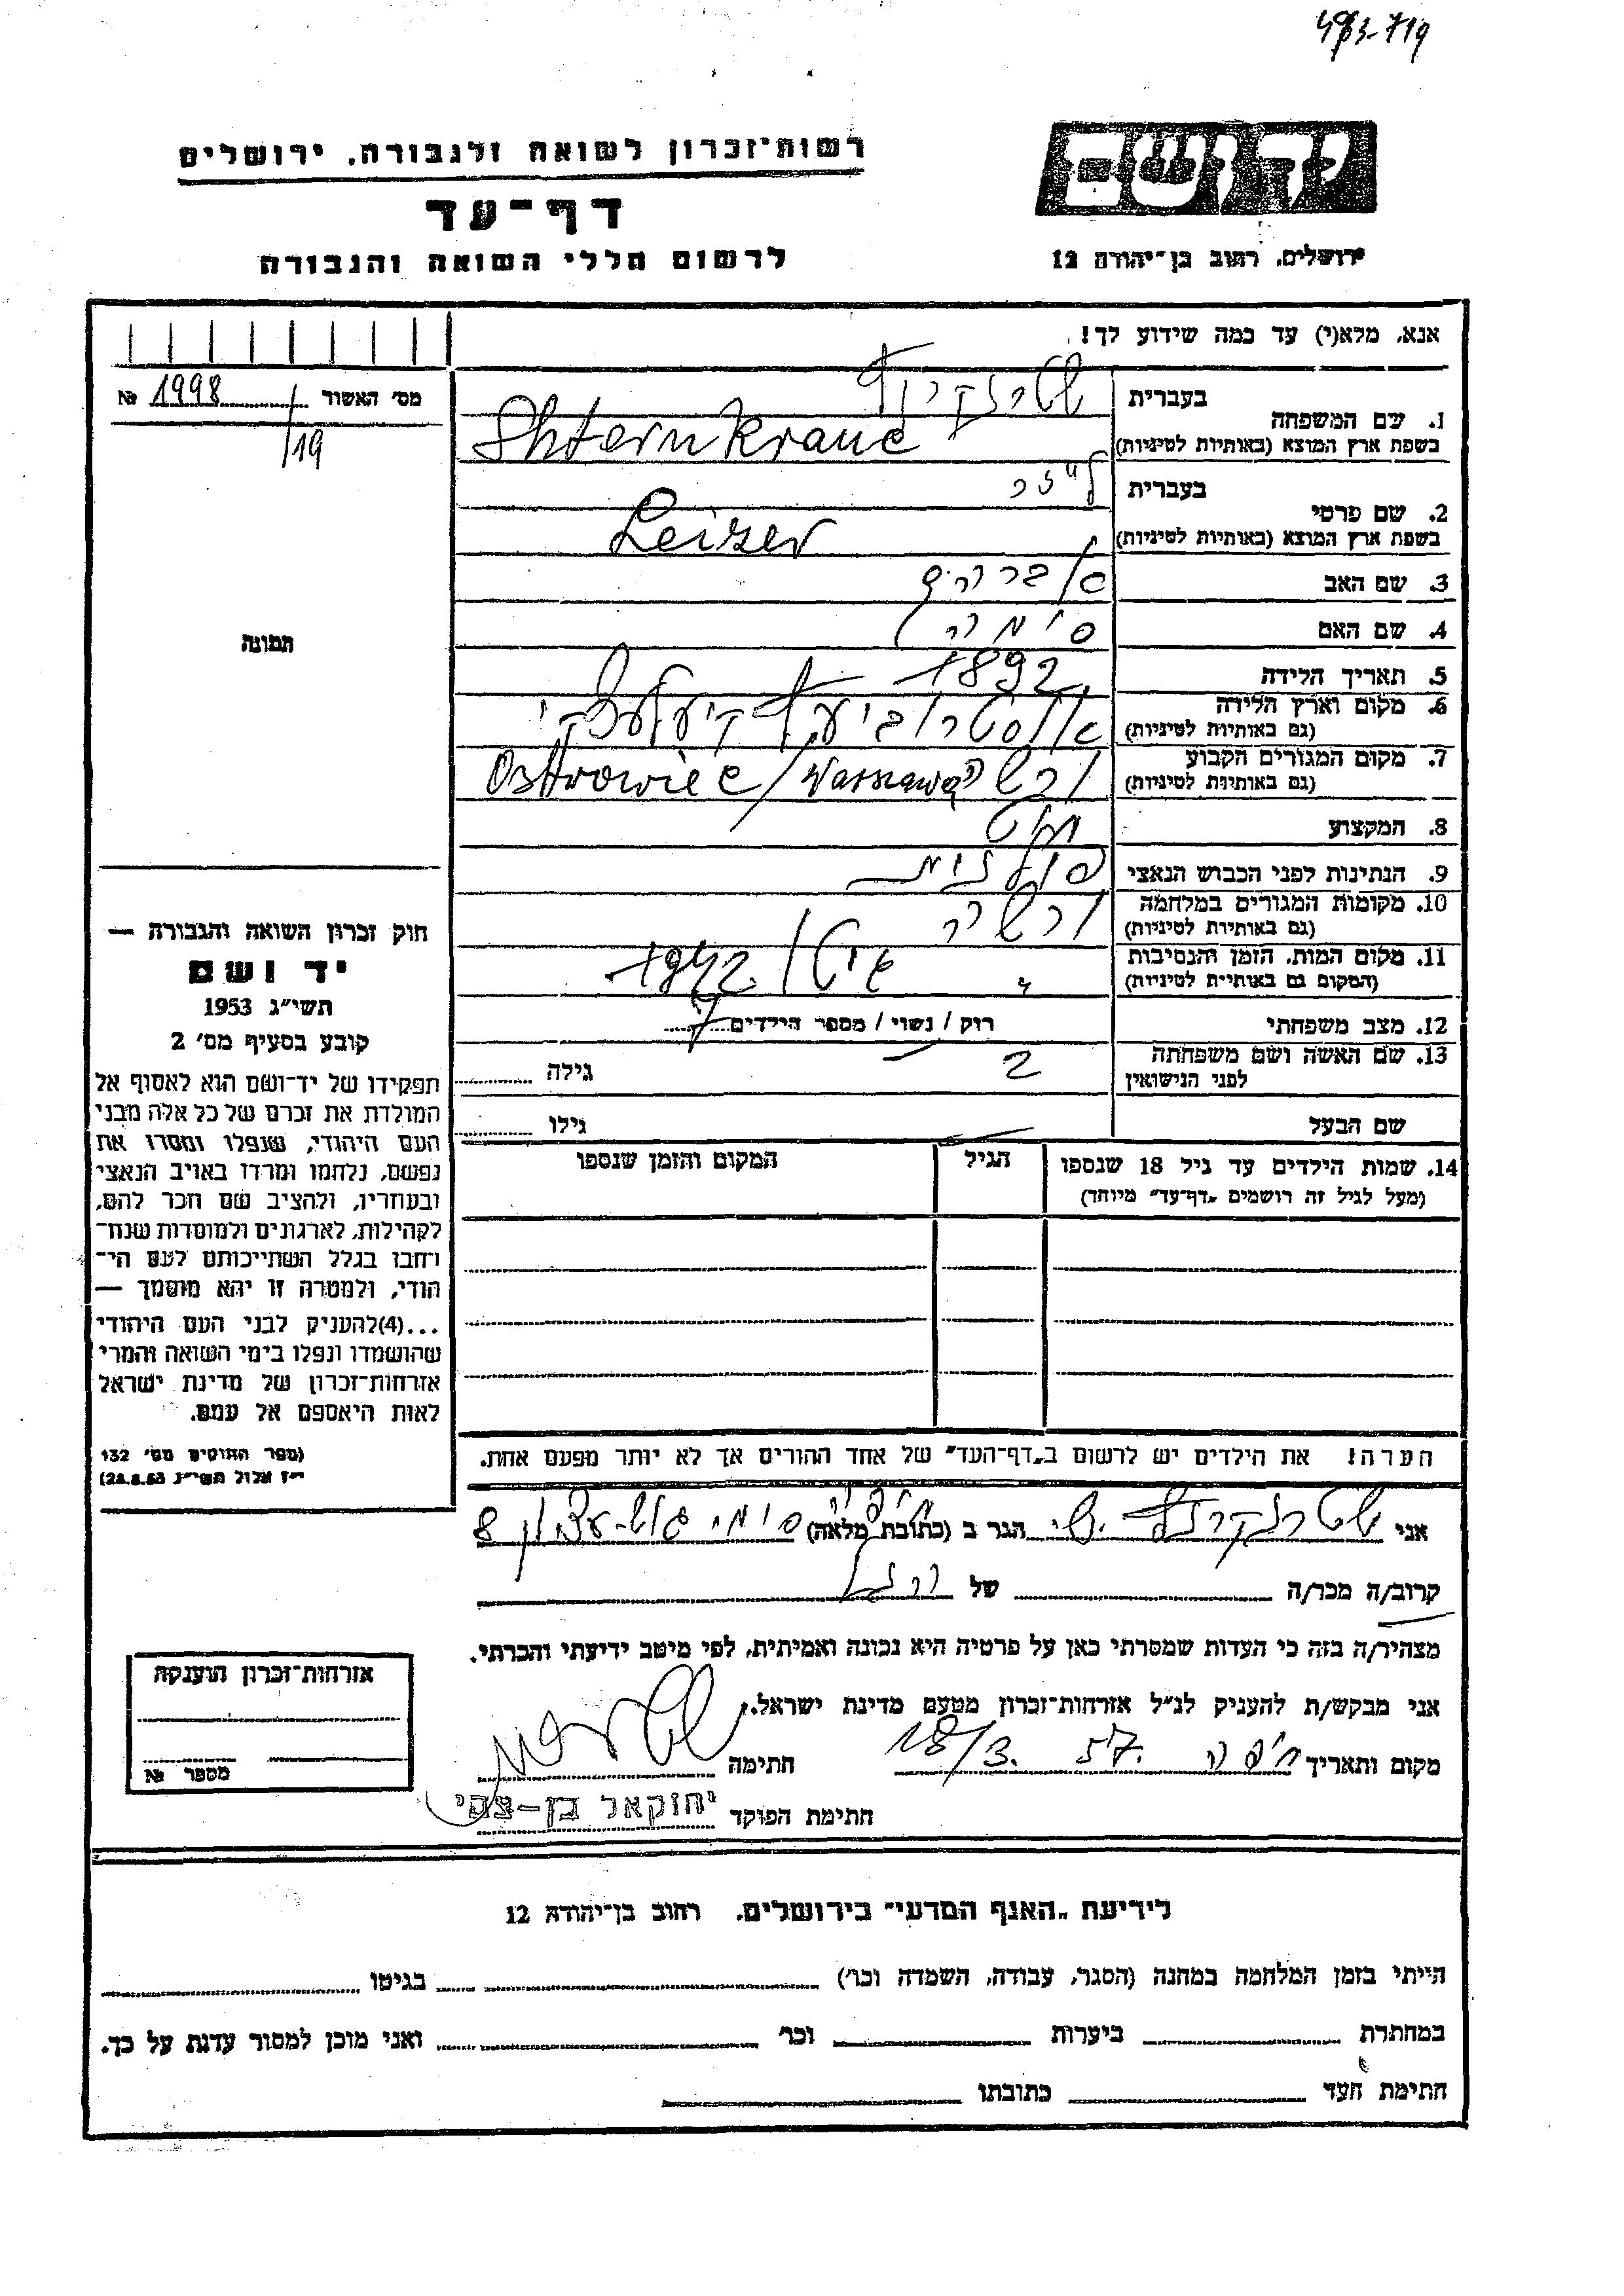 493-719
יד ושם
רשות־זכרון לשואה ולגבורה, ירושלים
דף־עד
לרשום חללי השואה והגבורה
ירושלים, רחוב בן־יהודה 12
אנא, מלא(י) עד כמה שידוע לך!
מס׳ האשור 1998 №
/19
תמונה
1. שם המשפחה
בעברית
בשפת ארץ המוצא (באותיות לטיניות) Shternkranc
2. שם פרטי
בעברית לייזר
בשפת ארץ המוצא (באותיות לטיניות) Leizer
3. שם האב אברהם
4. שם האם סימה
5. תאריך הלידה 1892
6. מקום וארץ הלידה
(גם באותיות לטיניות)
7. מקום המגורים הקבוע ורשה Ostrowiec/Warszawa
(גם באותיות לטיניות)
8. המקצוע
9. הנתינות לפני הכבוש הנאצי פולנית
10. מקומות המגורים במלחמה ורשה
(גם באותיות לטיניות)
11. מקום המות, הזמן והנסיבות 1942
(המקום גם באותיות לטיניות)
12. מצב משפחתי רווק / נשוי / מספר הילדים 7
13. שם האשה ושם משפחתה
לפני הנישואין 2 גילה
שם הבעל גילו
14. שמות הילדים עד גיל 18 שנספו הגיל המקום והזמן שנספו
(מעל לגיל זה רושמים „דף־עד״ מיוחד)
חוק זכרון השואה והגבורה —
יד ושם
תשי״ג 1953
קובע בסעיף מס׳ 2
תפקידו של יד־ושם הוא לאסוף אל
המולדת את זכרם של כל אלה מבני
העם היהודי, שנפלו ומסרו את
נפשם, נלחמו ומרדו באויב הנאצי
ובעוזריו, ולהציב שם וזכר להם,
לקהילות, לארגונים ולמוסדות שנח־
רבו בגלל השתייכותם לעם הי־
הודי, ולמטרה זו יהא מוסמך —
...(4)להעניק לבני העם היהודי
שהושמדו ונפלו בימי השואה והמרי
אזרחות־זכרון של מדינת ישראל
לאות היאספם אל עמם.
(ספר החוקים מס׳ 132
י״ז אלול תשי״ג 28.8.53)
הערה! את הילדים יש לרשום ב„דף־העד״ של אחד ההורים אך לא יותר מפעם אחת.
אני הגר ב (כתובת מלאה) חיפה 8
קרוב/ה מכר/ה של
מצהיר/ה בזה כי העדות שמסרתי כאן על פרטיה היא נכונה ואמיתית, לפי מיטב ידיעתי והכרתי.
אני מבקש/ת להעניק לנ״ל אזרחות־זכרון מטעם מדינת ישראל.
מקום ותאריך חיפה 18/3. 57. חתימה
חתימת הפוקד יחזקאל בן-צבי
אזרחות־זכרון הוענקה
מספר №
לידיעת „האגף המדעי״ בירושלים, רחוב בן־יהודה 12
הייתי בזמן המלחמה במחנה (הסגר, עבודה, השמדה וכו׳) בגיטו
במחתרת ביערות וכו׳ ואני מוכן למסור עדות על כך.
חתימת העד כתובתו